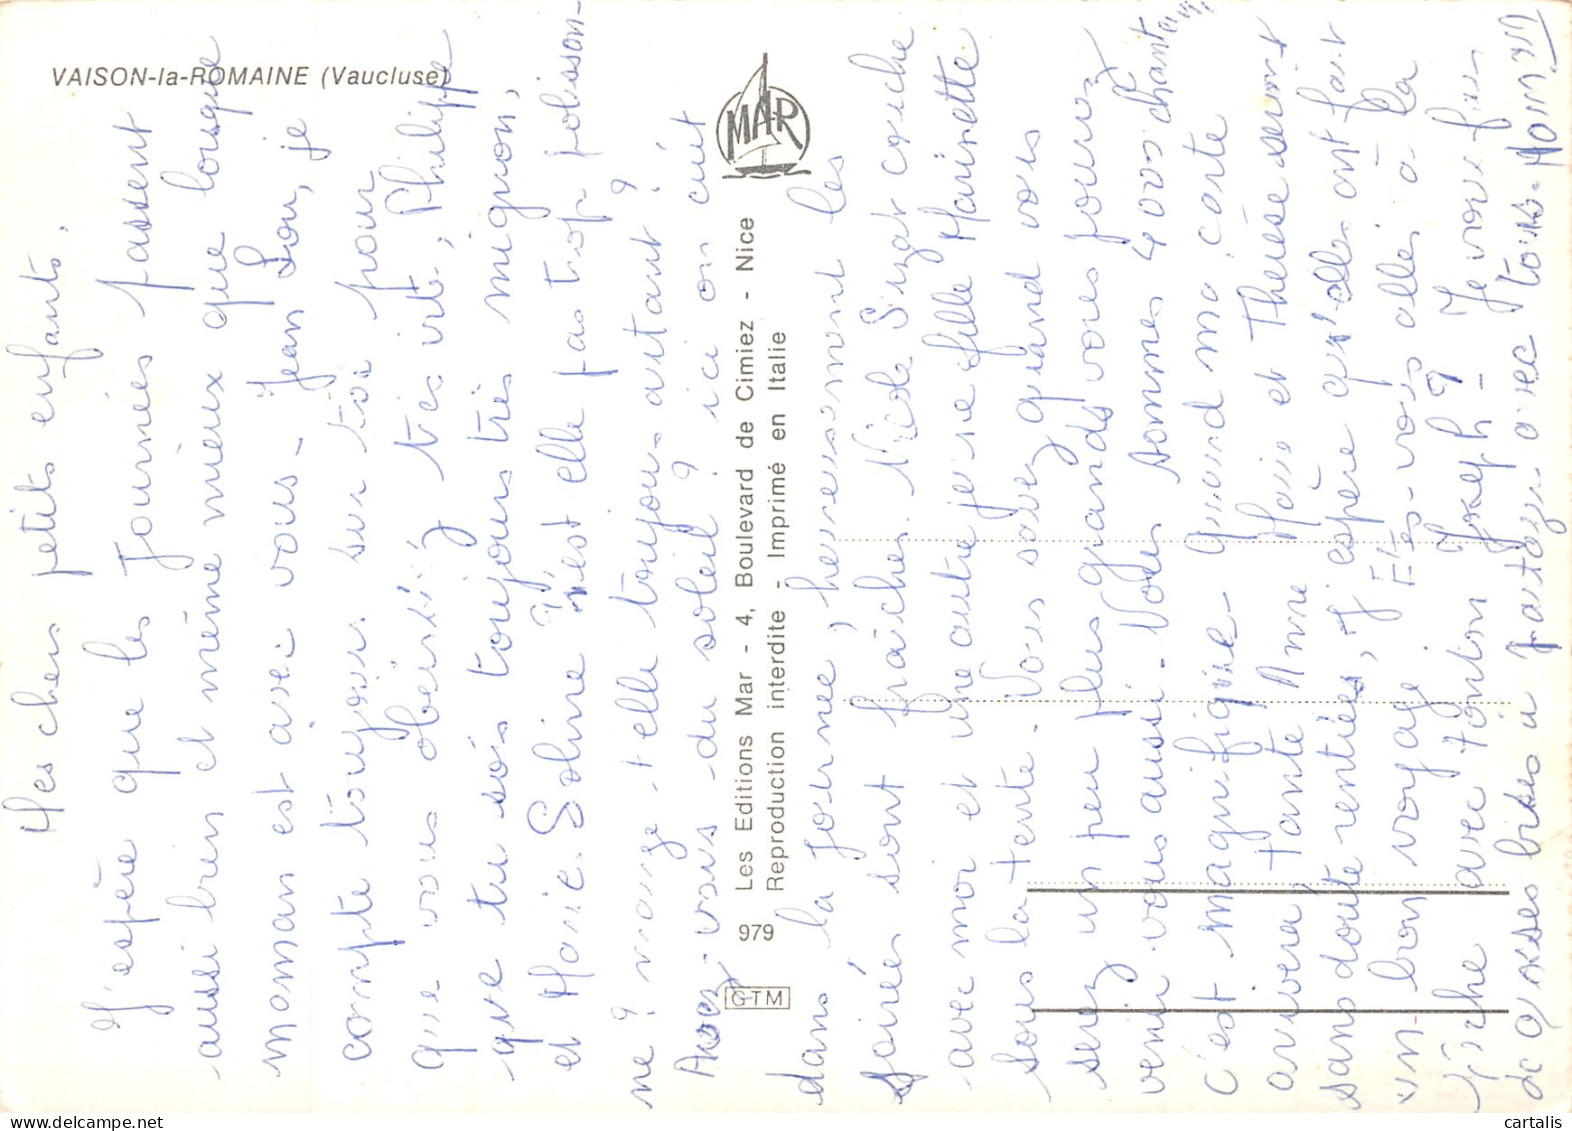 VAISON-la-ROMAINE (Vaucluse)
MAR
Les Editions Mar - 4, Boulevard de Cimiez - Nice
Reproduction interdite - Imprimé en Italie
979
GTM
Mes chers petits enfants,
J'espère que les journées passent
aussi bien et même mieux que lorsque
maman est avec vous - Jean Lou, je
compte toujours sur toi pour
que vous obéissiez très vite, Philippe
que tu sois toujours très mignon,
et Marie. Soline n'est elle pas trop polisson-
ne ? mange-t elle toujours autant ?
Avez-vous du soleil ? ici on cuit
dans la journée, heureusement les
soirées sont fraîches. Nicole couche
avec moi et une autre jeune fille Marinette
sous la tente - Vous savez quand vous
serez un peu plus grands vous pourrez
venir vous aussi - Nous sommes 4 000
c'est magnifique - Quand ma carte
arrivera, tante Anne Marie et Thérèse seront
sans doute rentrées, J'espère qu'elles ont fait
un bon voyage. Etes-vous allés à la
pêche avec tonton Joseph ? Je vous fais
de grosses bises à partager avec tous. Maman
cartalis